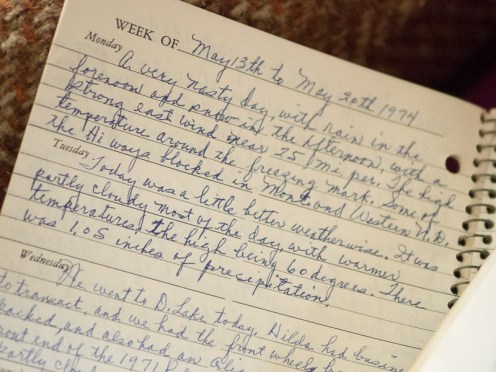 WEEK OF May 13th to May 20th 1974
Monday
A very nasty day, with rain in the
forenoon and snow in the Afternoon, with a
strong east wind near 75 Mi. per. The high
temperature around the freezing mark. Some of
the Hi ways blocked in Mont. and Western N.D.
Tuesday
Today was a little better weatherwise. It was
partly cloudy most of the day, with warmer
temperatures, the high being 60 degrees. There
was 1.05 inches of precipitation.
Wednesday
We went to D. Lake today, Hilda had busine
to transact, and we had the front wheels
packed, and also had an
ront end of the 1971
partly